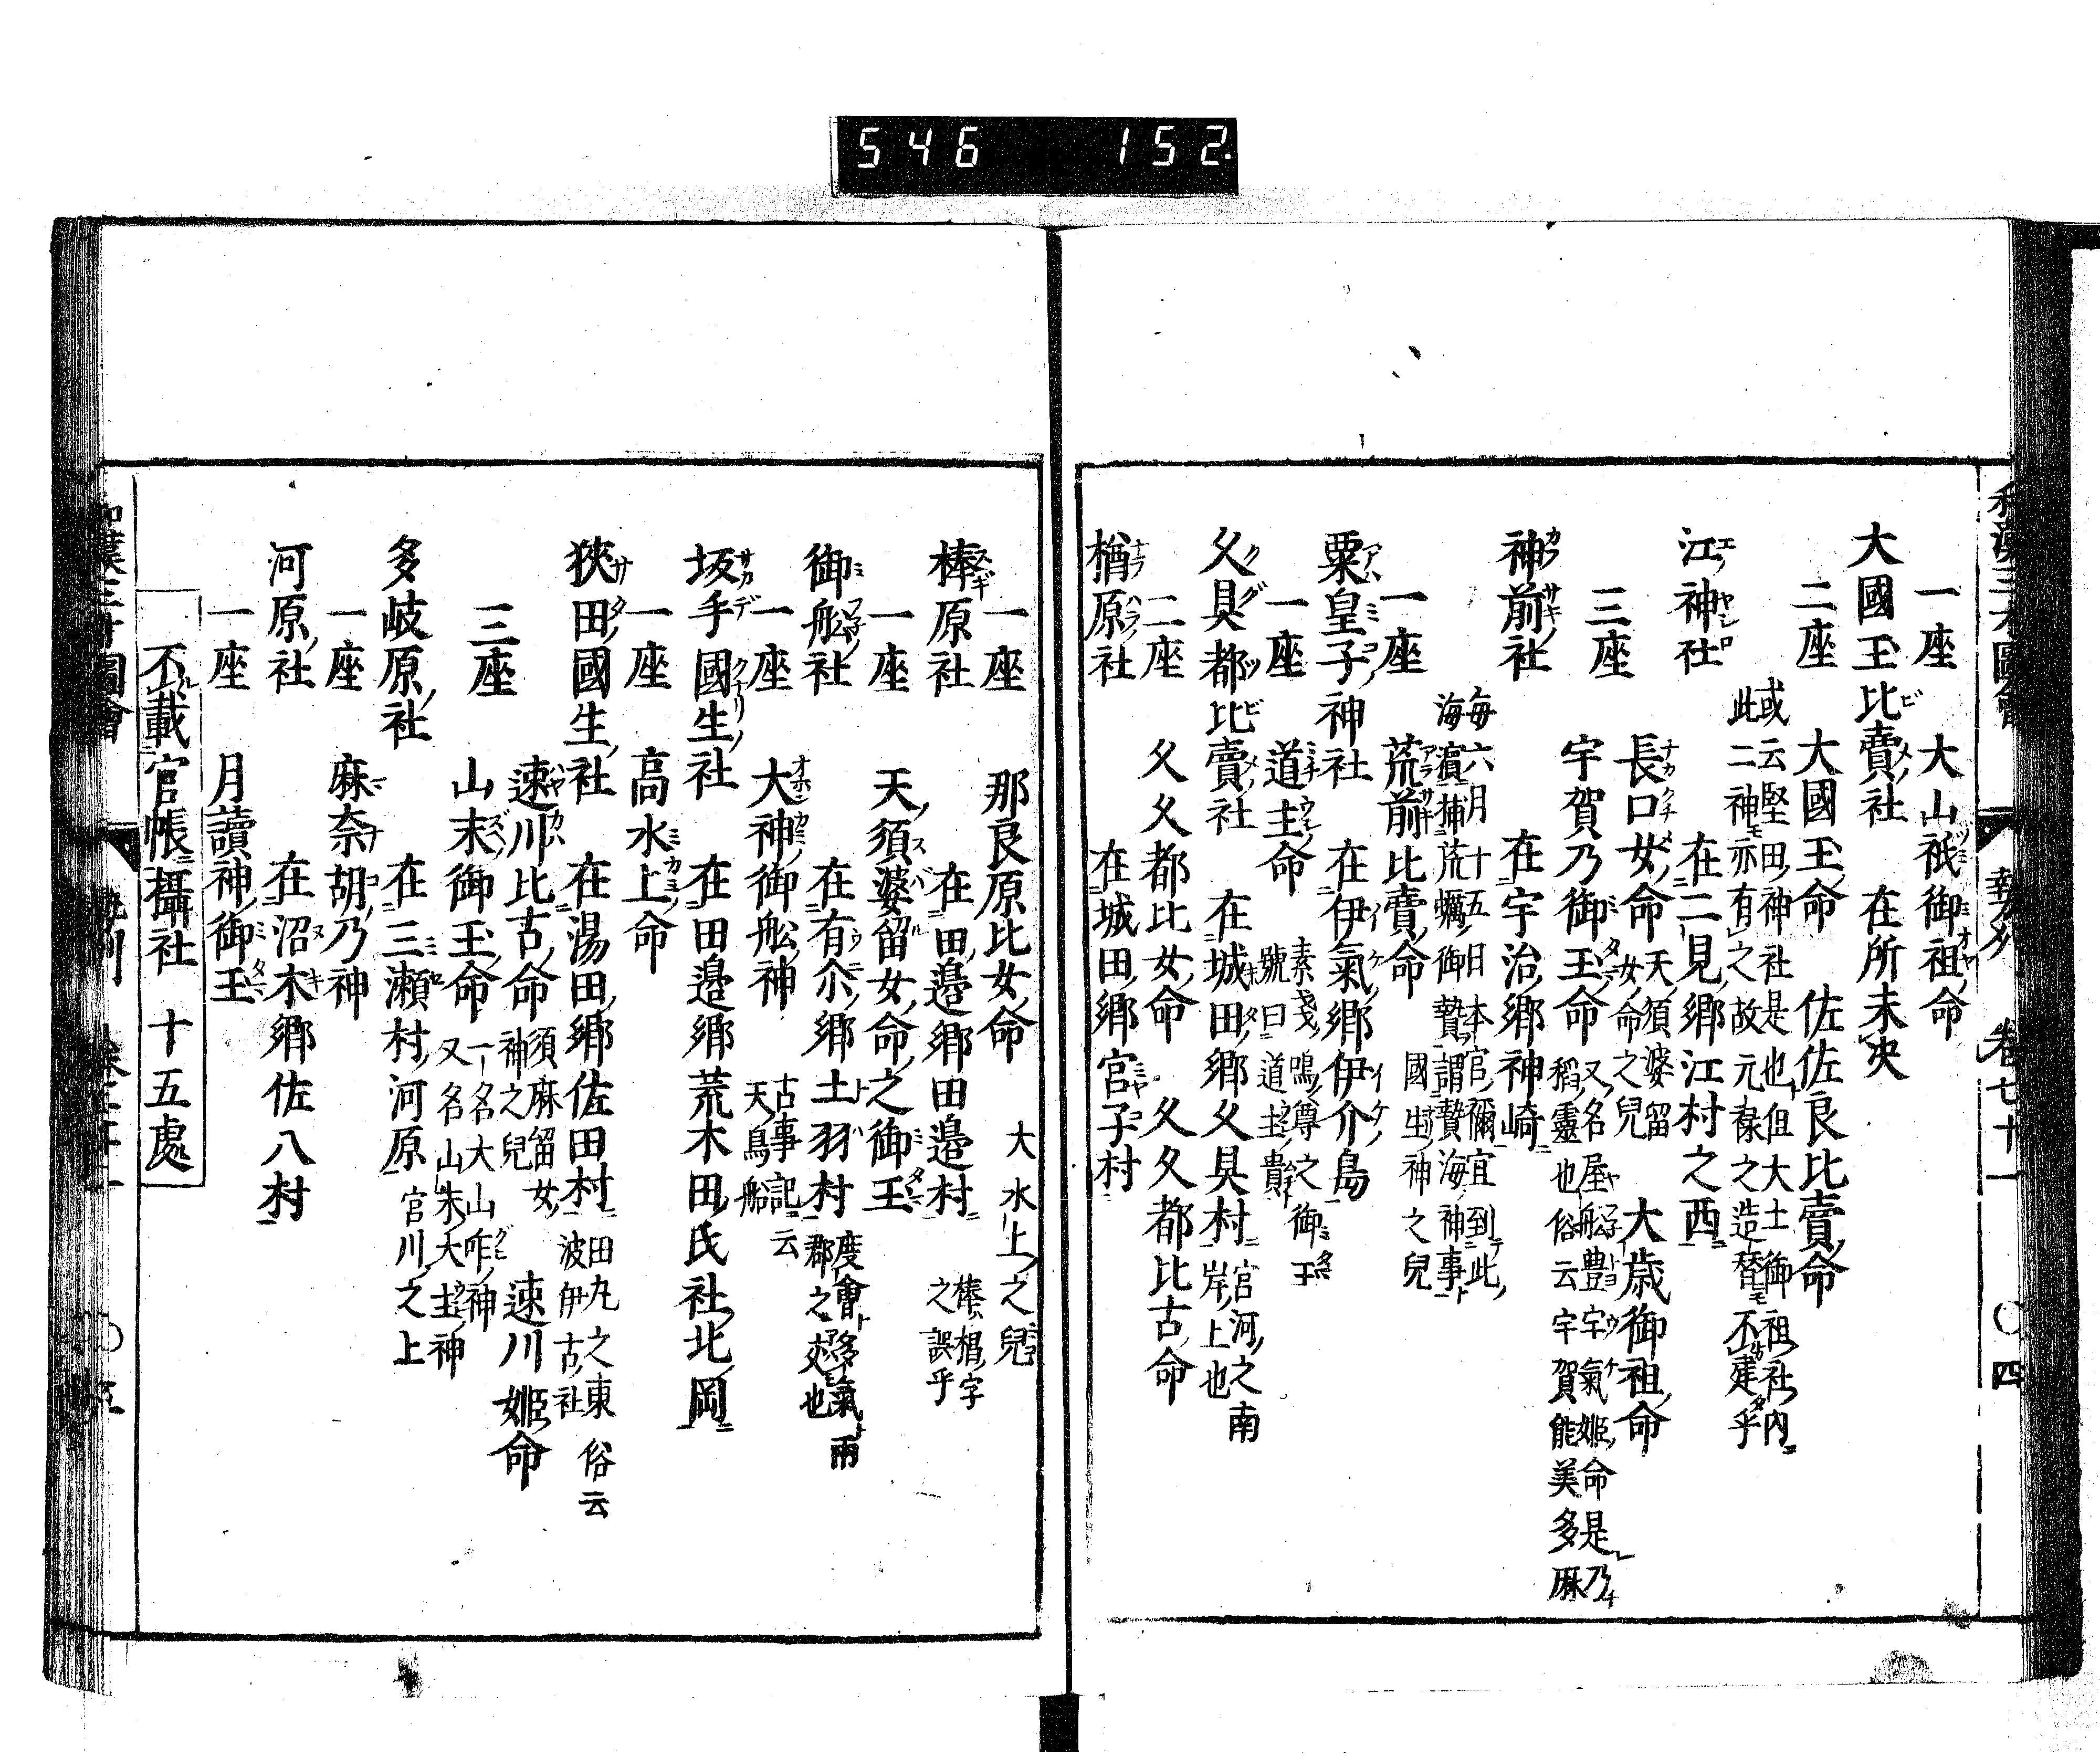 546 152
一座 大山祇御祖命
大國玉比賣社 在所未决
二座 大國玉命 佐佐良比賣命
或云堅田神社是也但大土御祖社內
此二神亦有之故元禄之造替不建乎
江神社 在二見郷江村之西
三座 長口女命 天須婆留女命之兒 大歳御祖命
宇賀乃御玉命 又名屋船豊宇氣姫命是乃稻靈也俗云宇賀能美多麻
神前社 在宇治郷神崎
每六月十五日本官禰宜到此
海濵捕荒蠣御贄謂贄海神事
一座 荒前比賣命 國生神之兒
粟皇子神社 在伊氣郷伊介島
一座 道主命 素戔嗚尊之御玉號曰道主貴
久具都比賣社 在城田郷久具村 官河之南岸上也
二座 久久都比女命 久久都比古命
楢原社 在城田郷宮子村
卷七十一 〇四
一座 那良原比女命 大水上之兒
棒原社 在田邉郷田邉村 棒椙字之誤乎
一座 天須婆留女命之御玉
御舩社 在有尒郷土羽村 度會多氣兩郡之交也
一座 大神御舩神 古事記云天鳥船
坂手國生社 在田邉郷荒木田氏社北岡
一座 高水上命
狹田國生社 在湯田郷佐田村 田丸之東俗云波伊古社
三座 速川比古命 須麻留女神之兒 速川姫命
山末御玉命 一名大山咋神又名山末大主神
多岐原社 在三瀬村河原 官川之上
一座 麻奈胡乃神
河原社 在沼木郷佐八村
一座 月讀神御玉
不載官帳攝社 十五處